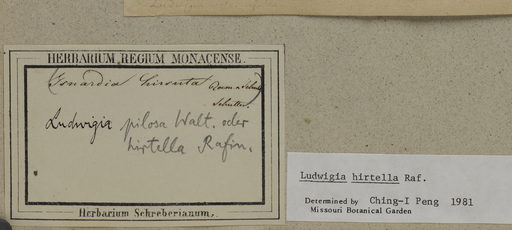 HERBARIUM REGIUM MONACENSE.
Isnardia hirsuta Roem. & Schult.
Schultes.
Ludwigia pilosa Walt. oder
hirtella Rafin.
Herbarium Schreberianum.
Ludwigia hirtella Raf.
Determined by Ching-I Peng 1981
Missouri Botanical Garden